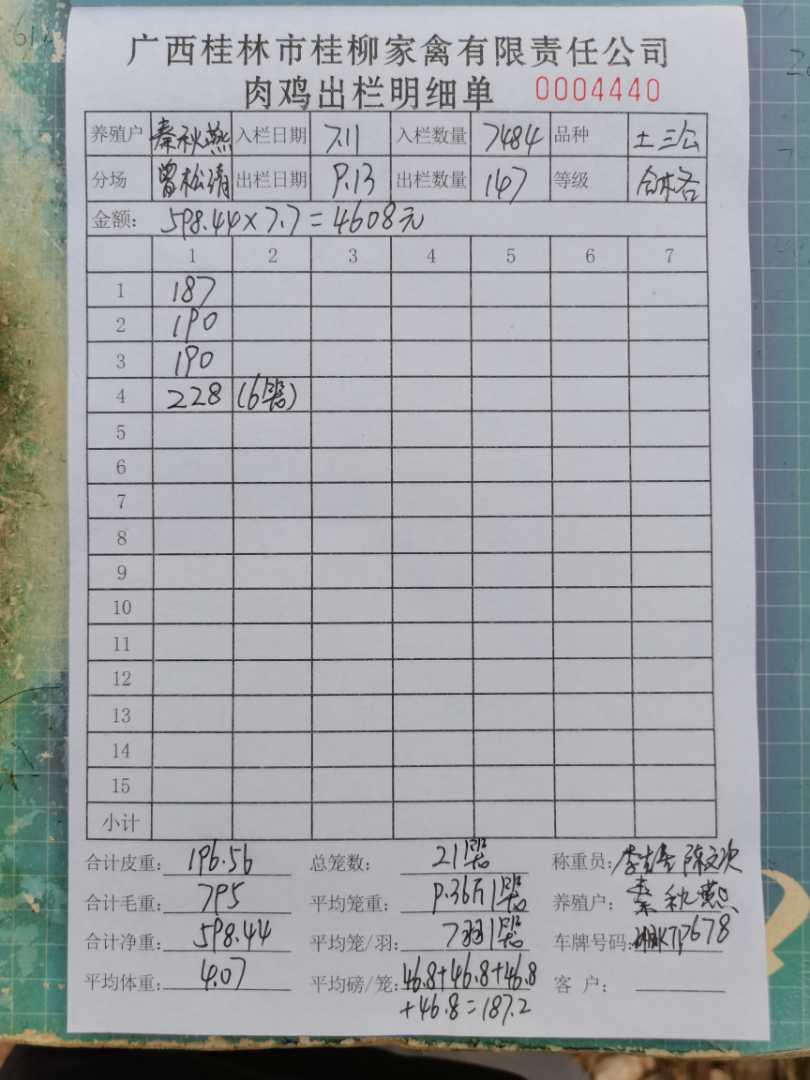 广西桂林市桂柳家禽有限责任公司
肉鸡出栏明细单 0004440
养殖户 秦秋燕 入栏日期 7.11 入栏数量 7484 品种 土三公
分场 曾松靖 出栏日期 9.13 出栏数量 147 等级 合格
金额: 598.44×7.7=4608元
1 2 3 4 5 6 7
1 187
2 190
3 190
4 228 (6笼)
5
6
7
8
9
10
11
12
13
14
15
小计
合计皮重: 196.56 总笼数: 21笼 称重员:
合计毛重: 795 平均笼重: 9.36斤/笼 养殖户: 秦秋燕
合计净重: 598.44 平均笼/羽: 7羽/笼 车牌号码:
平均体重: 4.07 平均磅/笼: 46.8+46.8+46.8 客户:
+46.8=187.2